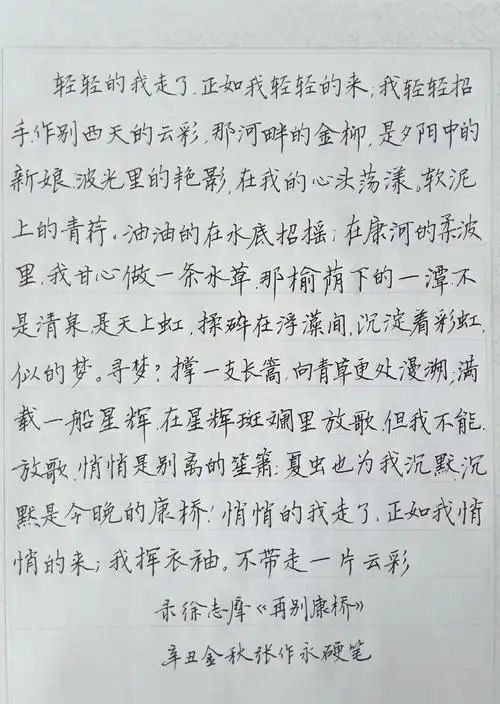 轻轻的我走了.正如我轻轻的来;我轻轻招
手.作别西天的云彩,那河畔的金柳,是夕阳中的
新娘.波光里的艳影,在我的心头荡漾。软泥
上的青荇。油油的在水底招摇;在康河的柔波
里,我甘心做一条水草.那榆荫下的一潭不
是清泉.是天上虹,揉碎在浮藻间,沉淀着彩虹
似的梦。寻梦?撑一支长篙,向青草更处漫溯,满
载一船星辉.在星辉斑斓里放歌.但我不能.
放歌.悄悄是别离的笙箫;夏虫也为我沉默.沉
默是今晚的康桥!悄悄的我走了.正如我悄
悄的来;我挥衣袖。不带走一片云彩
录徐志摩《再别康桥》
辛丑金秋张作永硬笔